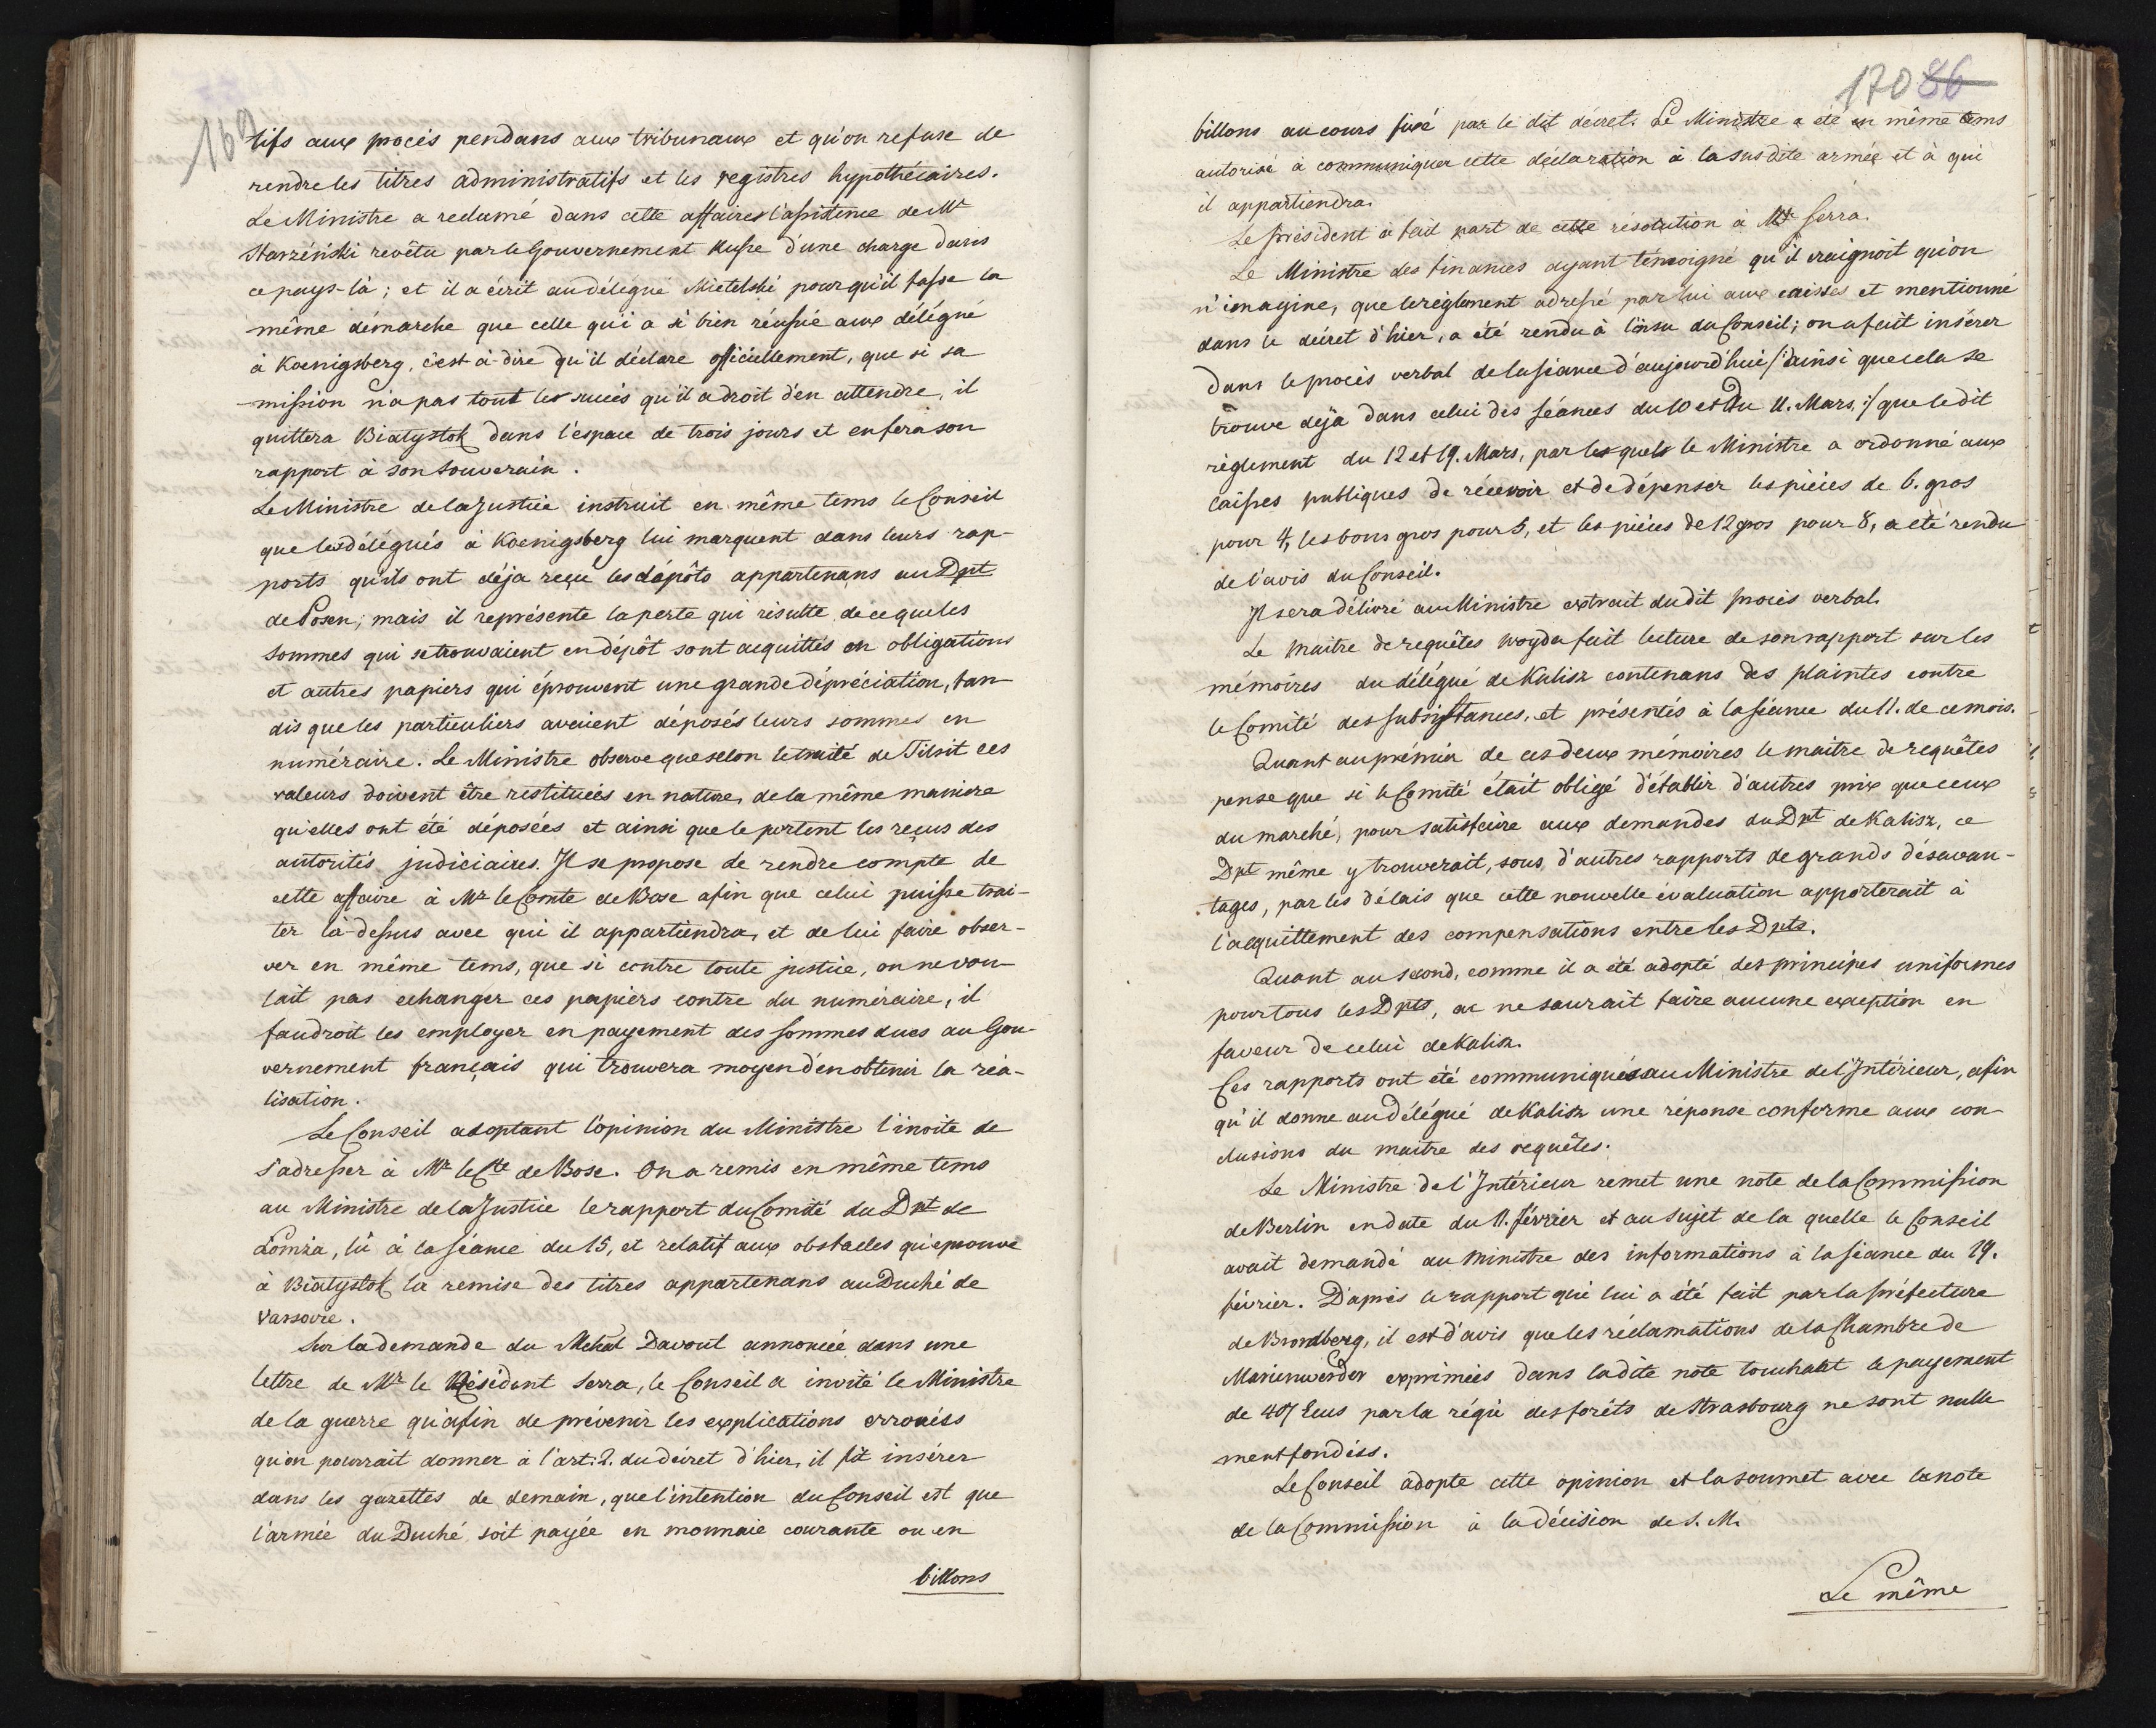 169
tifs aux procés pendans aux tribunaux et qu'on refuse de
rendre les titres administratifs et les registres hypothécaires.
Le Ministre a reclamé dans cette affaires l'assistence de Mr
Starzéński revêtu par le Gouvernement Russe d'une charge dans
ce pays-là; et il a écrit au délégué Mietelski pour qu'il fasse la
même démarche que celle qui a si bien réussie aux délégué
à Koenigsberg, c'est-à-dire qu'il déclare officiellement, que si sa
mission n'a pas tout les succés qu'il a droit d'en attendre, il
quittera Białystok dans l'espace de trois jours et en fera son
rapport à son Souverain.
Le Ministre de la Justice instruit en même tems le Conseil
que les délégués à Koenigsberg lui marquent dans leurs rap-
ports qu'ils ont déja reçu les dépôts appartenans au Dpt
de Posen; mais il représente la perte qui résulte de ce que les
sommes qui se trouvaient en dépôt sont acquittés en obligations
et autres papiers qui éprouvent une grande dépréciation, tan-
dis que les particuliers avaient déposés leurs sommes en
numéraire. Le Ministre observe que selon le traité de Tilsit ces
valeurs doivent être restituées en nature, de la même maniere
qu'elles ont été déposées et ainsi que le portent les reçus des
autorités judiciaires. Il se propose de rendre compte de
cette affaire à Mr le Comte de Bose afin que celui puisse trai-
ter là-dessus avec qui il appartiendra, et de lui faire obser-
ver en même tems, que si contre toute justice, on ne vou-
lait pas echanger ces papiers contre du numéraire, il
faudroit les employer en payement des sommes dues au Gou-
vernement français qui trouvera moyen d'en obtenir la réa-
lisation.
Le Conseil adoptant l'opinion du Ministre l'invite de
s'adresser à Mr le Cte de Bose. On a remis en même tems
au Ministre de la Justice le rapport du Comité du Dpt de
Łomża, lû à la séance du 15, et relatif aux obstacles qu'eprouve
à Białystok la remise des titres appartenans au Duché de
Varsovie.
Sur la demande du Mchal Davout annoncée dans une
lettre de Mr le Résident Serra, le Conseil a invité le Ministre
de la guerre qu'afin de prévenir les explications erronées
qu'on pourrait donner à l'art. 2. du décret d'hier, il fit insérer
dans les gazettes de demain, que l'intention du Conseil est que
l'armée du Duché soit payée en monnaie courante ou en
billons
170 86
billons au cours fixé par le dit décret. Le Ministre a été en même tems
autorisé à communiquer cette déclaration à la susdite armée et à qui
il appartiendra.
Le Président a fait part de cette résolution à Mr Serra.
Le Ministre des finances ayant témoigné qu'il craignoit qu'on
n'imagine, que le règlement adressé par lui aux caisses et mentionné
dans le décret d'hier, a été rendu à l'insu du Conseil; on a fait insérer
dans le procès verbal de la séance d'aujourd'hui /: ainsi que cela se
trouve déja dans celui des séances du 10 et du 11. Mars, :/ que le dit
règlement du 12 et 19. Mars, par lesquels le Ministre a ordonné aux
caisses publiques de récevoir et de dépenser les pièces de 6. gros
pour 4, les bons gros pour 5, et les pièces de 12 gros pour 8, a été rendu
de l'avis du Conseil.
Il sera délivré au Ministre extrait dudit procès verbal.
Le maitre de requêtes Woyda fait lecture de son rapport sur les
mémoires du délégué de Kalisz contenans des plaintes contre
le Comité des subsistances, et présentés à la séance du 11. de ce mois.
Quant au prémier de ces deux mémoires le maitre de requêtes
pense que si le Comité était obligé d'établir d'autres prix que ceux
du marché, pour satisfaire aux demandes du Dpt de Kalisz, ce
Dpt même y trouverait, sous d'autres rapports de grands désavan-
tages, par les délais que cette nouvelle évaluation apporterait à
l'acquittement des compensations entre les Dpts.
Quant au second, comme il a été adopté des principes uniformes
pour tous les Dpts, on ne saurait faire aucune exception en
faveur de celui de Kalisz.
Ces rapports ont été communiqués au Ministre de l'Intérieur, afin
qu'il donne au délégué de Kalisz une réponse conforme aux con-
clusions du maitre des requêtes.
Le Ministre de l'Intérieur remet une note de la Commission
de Berlin en date du 11. février et au sujet de la quelle le Conseil
avait demandé au ministre des informations à la séance du 19.
février. D'après le rapport qui lui a été fait par la préfecture
de Bromberg, il est d'avis que les réclamations de la Chambre de
Marienwerder exprimées dans ladite note touchant le payement
de 407 Ecus par la régie des forêts de Strasbourg ne sont nulle
ment fondées.
Le Conseil adopte cette opinion et la soumet avec la note
de la Commission à la décision de S. M.
Le même